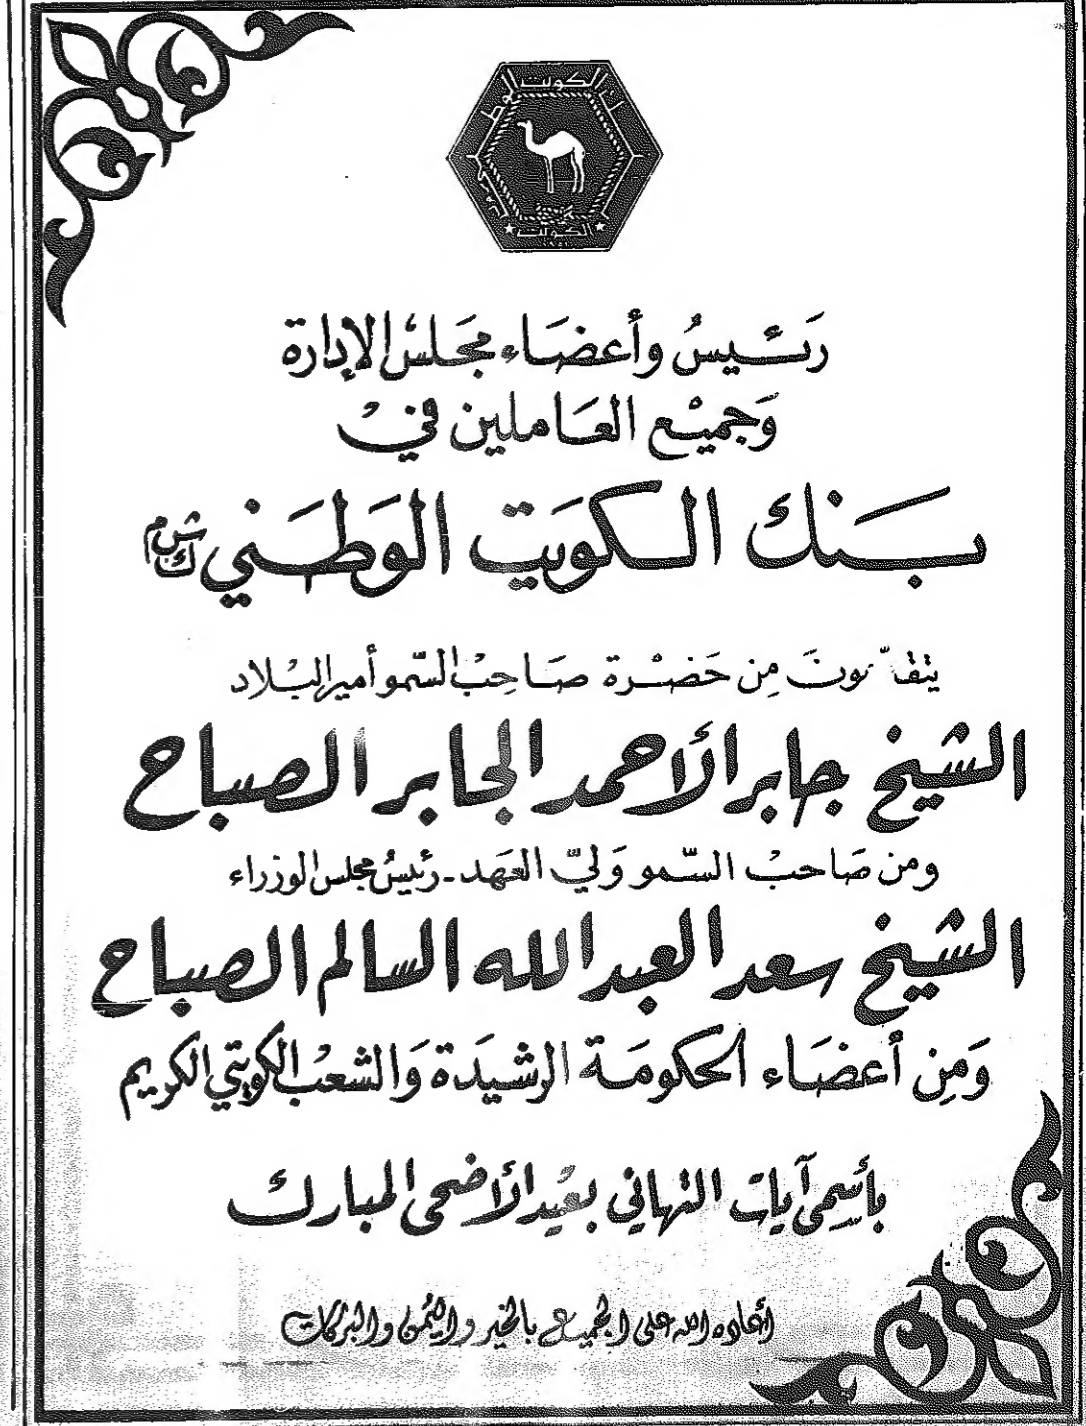 الكويت
الكويت
١٩٥٢
رَئيسُ وأعضَاء مجَلسْ الإدارة
وَجميْع العَاملين فيْ
بَنك الكويَت الوَطَني ش م ك
يتقدّمونَ مِن حَضْرة صَاحِبْ السّمو أمير البْلاد
الشيخ جابر الأحمد الجابر الصباح
ومن صَاحبْ السّمو وَليّ العَهد - رئيسُ مجلس الوزراء
الشيخ سعد العبد الله السالم الصباح
وَمِن أعضَاء الحكومَة الرشيَدة وَالشعبْ الكويتي الكريم
بأسِمى آيات التهاني بعيْد الأضحى المبارك
أعاده الله على الجميع بالخير واليُمن والبركات